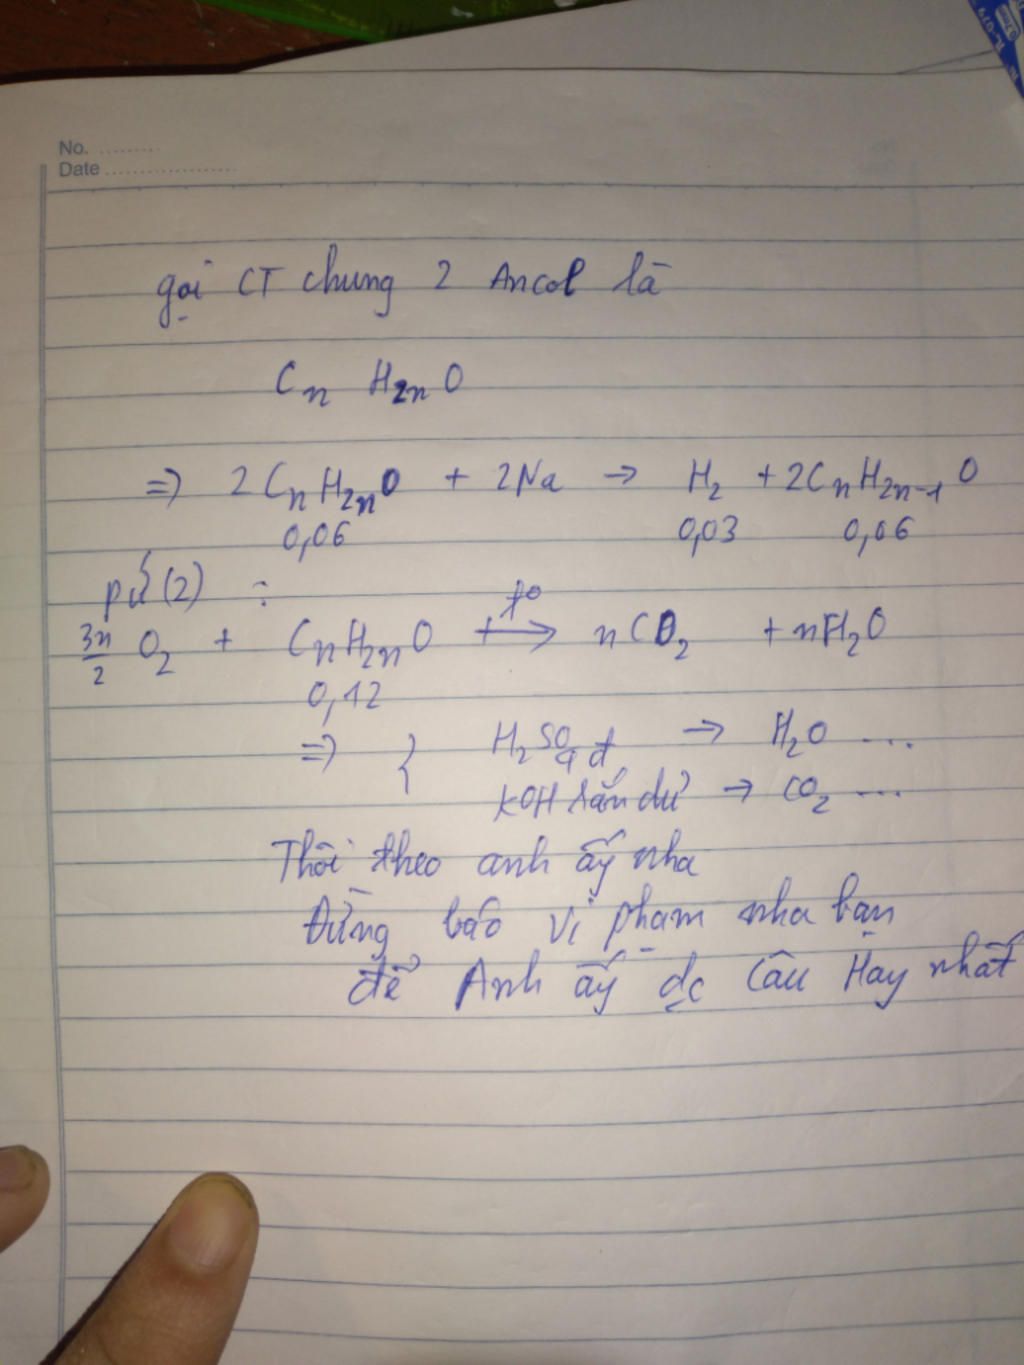 No. ..........
Date ......................
gọi CT chung 2 Ancol là
CnH2nO
=> 2CnH2nO + 2Na → H2 + 2CnH2n-1O
0,06 0,03 0,06
pứ (2) :
3n/2 O2 + CnH2nO +→ t° nCO2 + nH2O
0,12
=> { H2SO4 đ → H2O ...
KOH rắn dư → CO2 ...
Thôi theo anh ấy nha
Đừng báo vi phạm nha bạn
để Anh ấy dc Câu Hay nhất